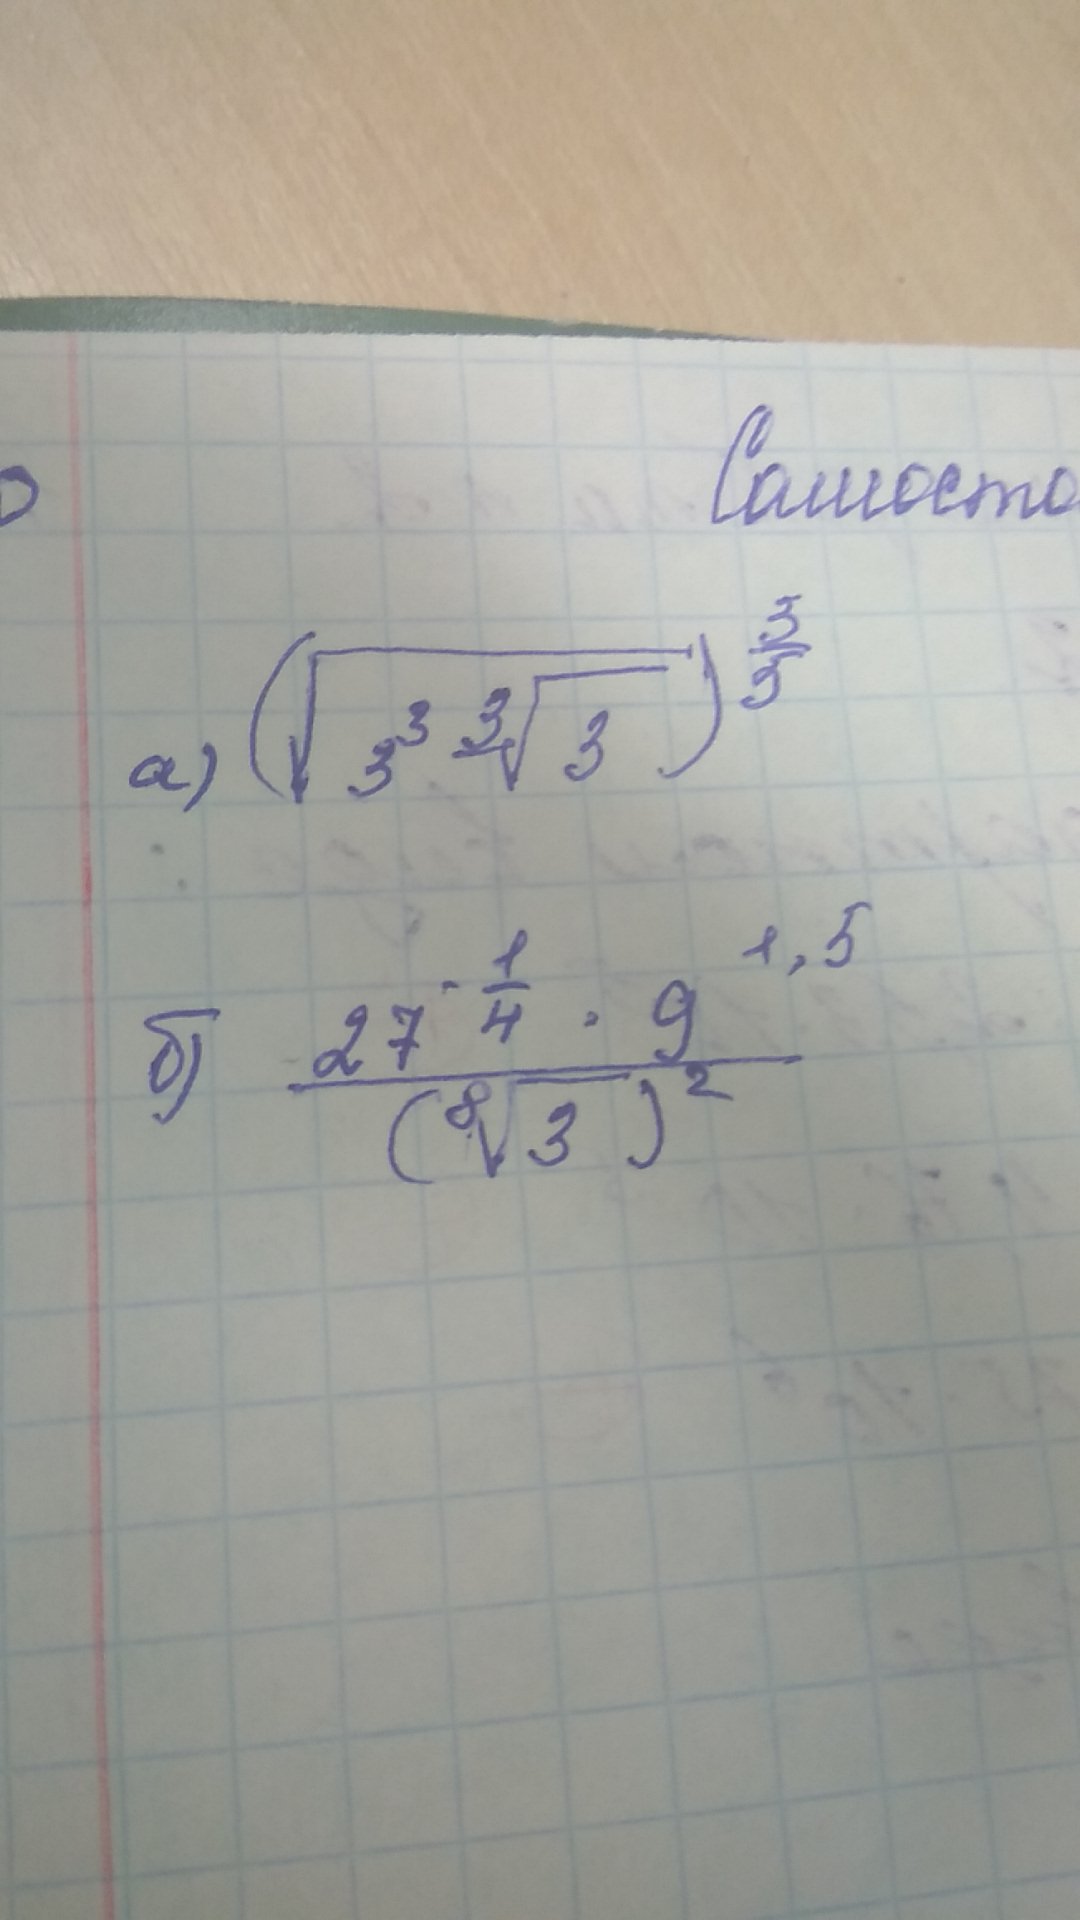 Самосто
а) (√(3³ ∛3))^(3/3)
б) (27^(-1/4) · 9^(1,5)) / (⁸√3)²